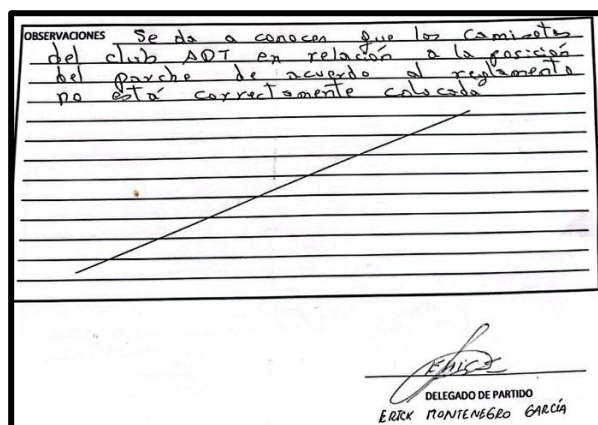 OBSERVACIONES Se da a conocer que las camisetas
del club ADT en relación a la posición
del parche de acuerdo al reglamento
no está correctamente colocada
Erick
DELEGADO DE PARTIDO
ERICK MONTENEGRO GARCÍA